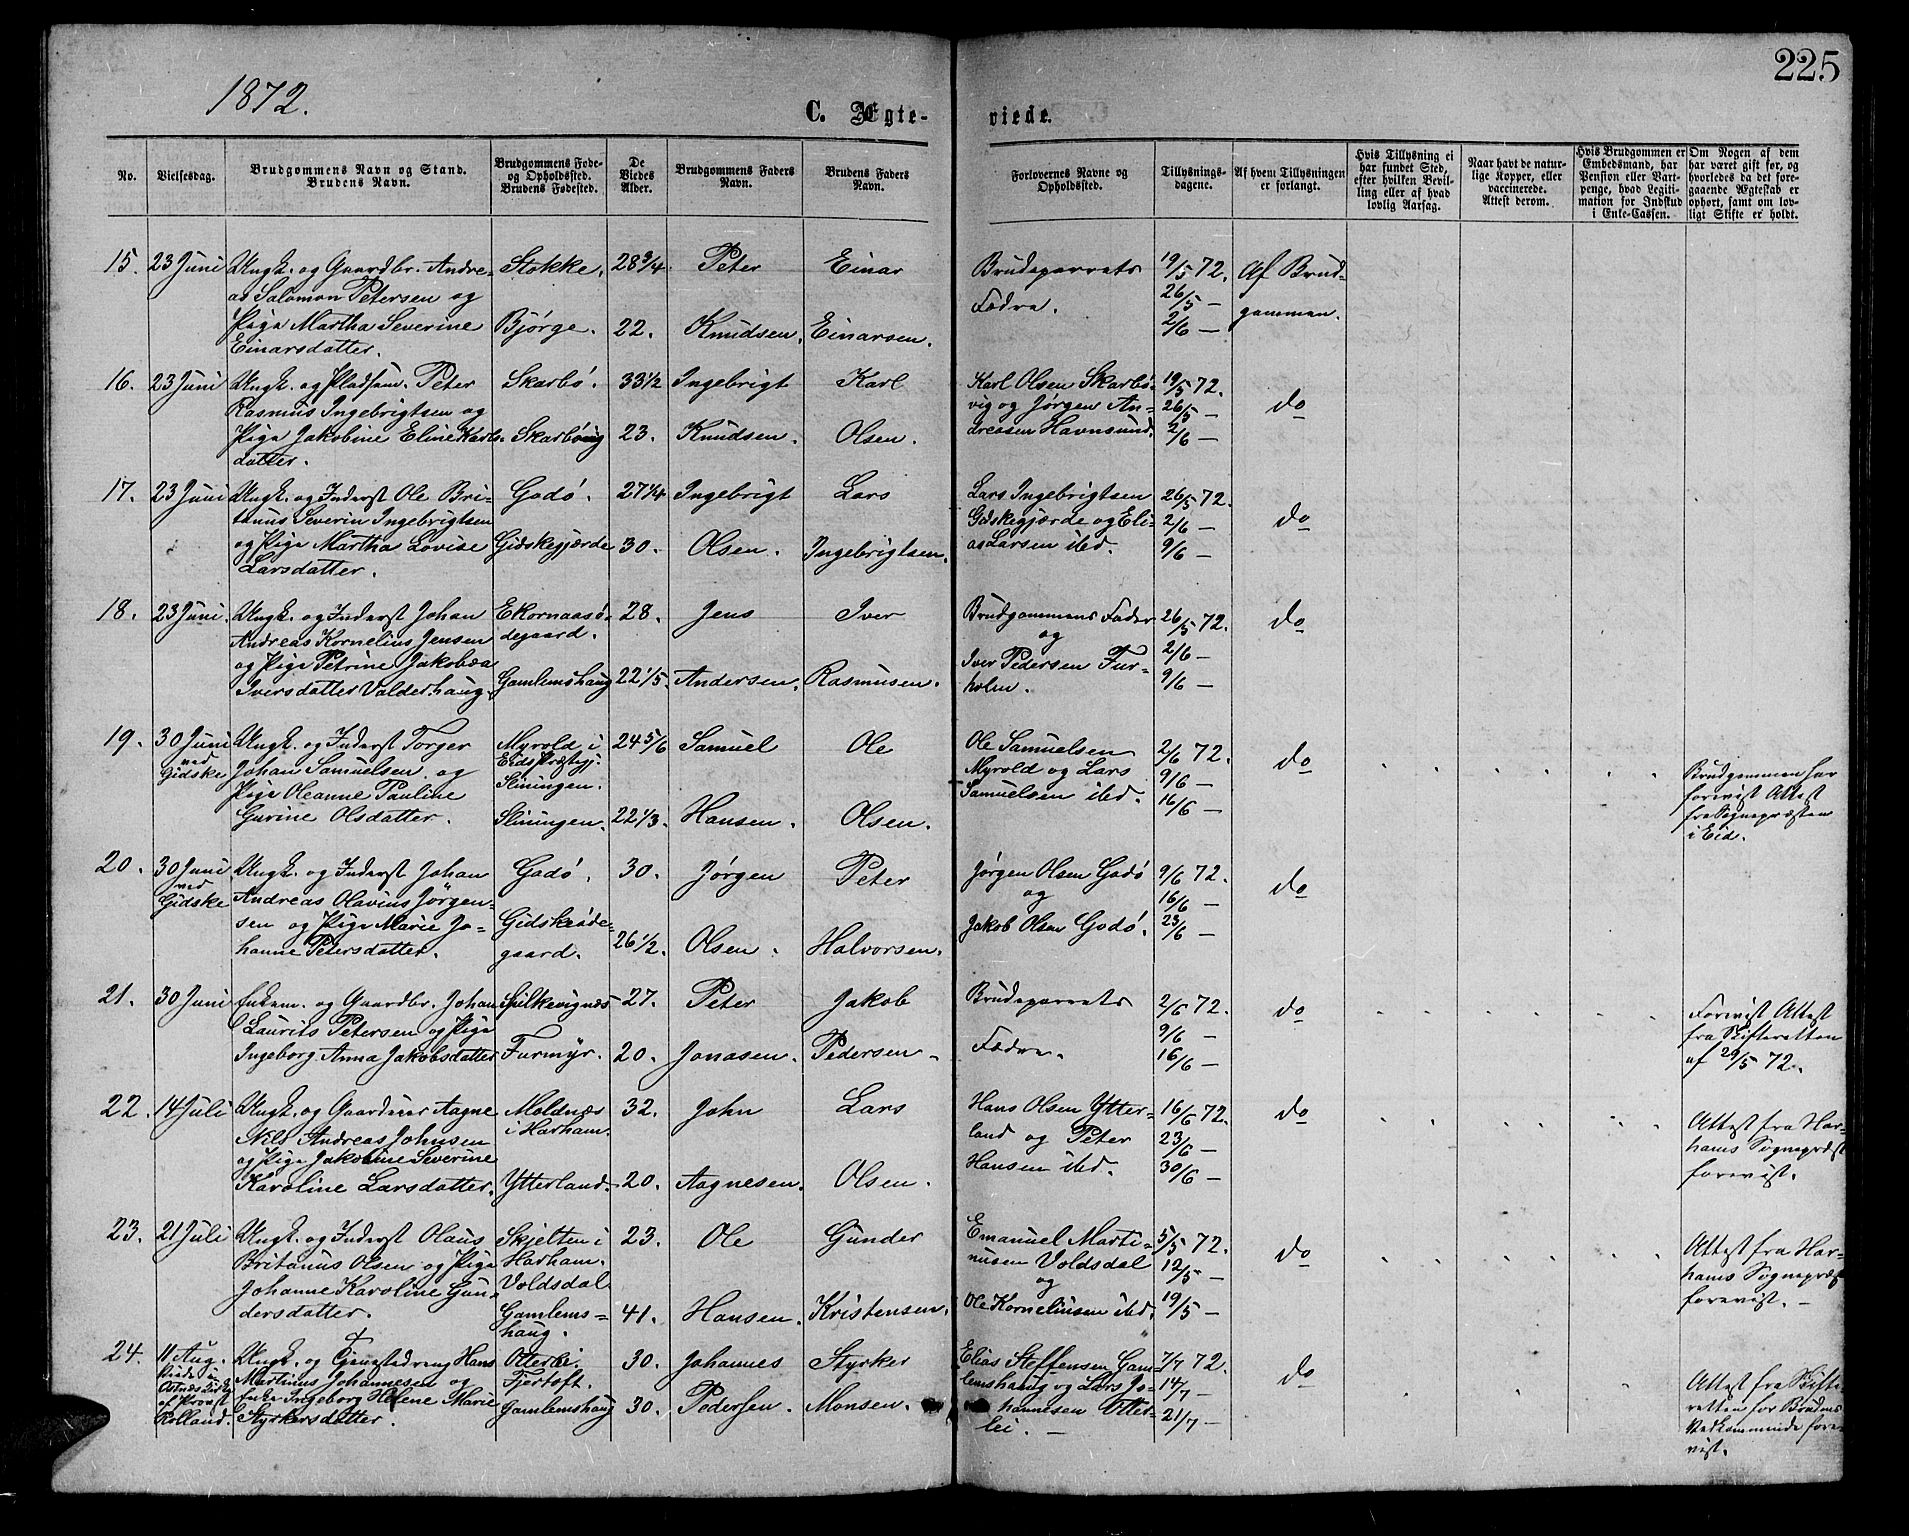 225
1872.
C. Ægte-
viede.
No.
Vielsesdag.
Brudgommens Navn og Stand.
Brudens Navn.
Brudgommens Føde-
og Opholdssted.
Brudens Fødested.
De
Viedes
Alder.
Brudgommens Faders
Navn.
Brudens Faders
Navn.
Forlovernes Navne og
Opholdssted.
Tillysnings-
dagene.
Af hvem Tillysningen
er forlangt.
Hvis Tillysning ei
har fundet Sted,
efter hvilken Bevil-
ling eller af hvad
lovlig Aarsag.
Naar havt de natur-
lige Kopper, eller
vaccinerede.
Attest derom.
Hvis Brudgommen er
Embedsmand, har
Pension eller Vart-
penge, hvad Legiti-
mation for Indskud
i Enke-Cassen.
Om Nogen af dem
har været gift før, og
hvorledes da det fore-
gaaende Ægteskab er
ophørt, samt om lov-
ligt Skifte er holdt.
15. 23 Juni Ungk. og Gaardbr. Andre- Stokke. 28 3/4. Peter Einar Brudeparrets 19/5 72. Af Brud-
as Salomon Petersen og 26/5 —
Pige Martha Severine Bjørge. 22. Knudsen. Einarsen. Fædre. 2/6 — gommen.
Einarsdatter.
16. 23 Juni Ungk. og Pladsm. Peter Skarbø. 33 1/2 Ingebrigt Karl Karl Olsen Skarbø- 19/5 72.
Rasmus Ingebrigtsen og vig og Jørgen An- 26/5 — do
Pige Jakobine Eline Karls- Skarbøvig 23. Knudsen. Olsen. dreasen Havnsund. 2/6 —
datter.
17. 23 Juni Ungk. og Inderst Ole Bri- Godø. 27 1/4 Ingebrigt Lars Lars Ingebrigtsen 26/5 72.
tanus Severin Ingebrigtsen Gidskegjærde og Eli- 2/6 — do
og Pige Martha Lovise Gidskegjærde 30. Olsen. Ingebrigtsen. as Larsen ibd. 9/6 —
Larsdatter.
18. 23 Juni. Ungk. og Inderst Johan Ekornaasø- 28. Jens Iver Brudgommens Fader 26/5 72. do
Andreas Kornelius Jensen degaard. og 2/6 —
og Pige Petrine Jakobæa Gamlemshaug 22 1/5. Andersen. Rasmusen. Iver Pedersen Fur- 9/6 —
Iversdatter Valderhaug. holm.
19. 30 Juni Ungk. og Inderst Torger Myrold i 24 5/6 Samuel Ole Ole Samuelsen 2/6 72. do
ved Johan Samuelsen og Eids Præstegj. Myrold og Lars 9/6 — Brudgommen har
Gidske Pige Oleanne Pauline Slinningen. Samuelsen ibd. 16/6 — forevist Attest
Gurine Olsdatter. Slinningen. 22 1/3. Hansen. Olsen. fra Sognepræsten
i Eid.
20. 30 Juni Ungk. og Inderst Johan Godø. 30. Jørgen Peter Jørgen Olsen Godø 9/6 72. do
ved Andreas Olavius Jørgen- og 16/6 —
Gidske sen og Pige Marie Jo- Gidskeøde- 26 1/2. Olsen. Halvorsen. Jakob Olsen Godø. 23/6 —
hanne Petersdatter. gaard.
21. 30 Juni Enkem. og Gaardbr. Johan Spilkevignæs 27. Peter Jakob Brudeparrets 2/6 72. do Forevist Attest
Laurits Petersen og Pige 9/6 — fra Skifteretten
Ingeborg Anna Jakobsdatter Furmyr. 20. Jonasen. Pedersen. Fædre. 16/6 — af 29/5 72.
22. 14 Juli Ungk. og Gaardbr. Aagne Moldnæs 32. John Lars Hans Olsen Ytter- 16/6 72. do
Nils Andreas Johnsen i Harham. land og Peter 23/6 — Attest fra Har-
og Pige Jakobine Severine Hansen ibd. 30/6 — hams Sognepræst
Karoline Larsdatter. Ytterland. 20. Aagnesen. Olsen. forevist.
23. 21 Juli Ungk. og Inderst Olaus Skjelten i 23. Ole Gunder Emanuel Marti- 5/5 72. do
Britanus Olsen og Pige Harham. nusen Voldsdal 12/5 — Attest fra Har-
Johanne Karoline Gun- Voldsdal og hams Sognepræst
dersdatter. Gamlems- 41. Hansen. Kristensen. Ole Korneliusen ibd. 19/5 — forevist. —
haug.
24. 11 Aug. Ungk. og Tjenestedreng Hans Otterlei. 30. Johannes Styrker Elias Steffensen Gam- 7/7 72. do
Viede i Martinus Johannesen og Fjørtoft. lemshaug og Lars Jo- 14/7 — Attest fra Skifte-
af Provst Enke Ingeborg Helene Marie Gamlemshaug 30. Pedersen. Monsen. hannesen Otter- 21/7 — retten for Brudens
Rolland. Styrkersdatter. lei. — Vedkommende fore-
vist.